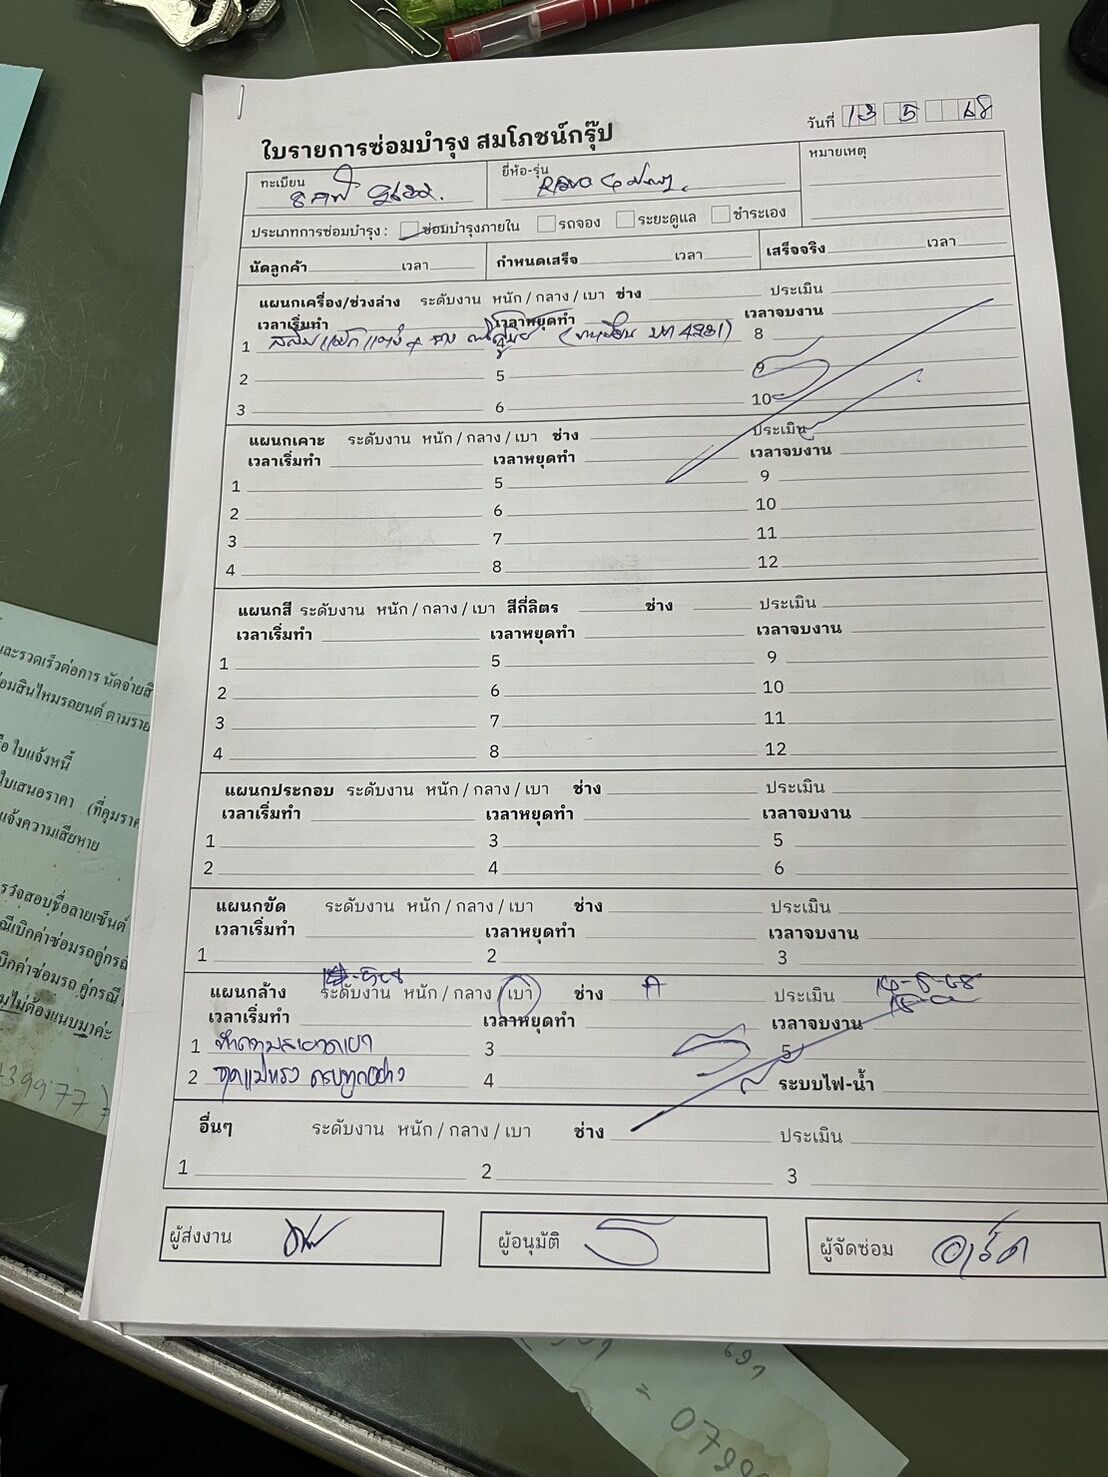 วันที่ 13 5 68
ใบรายการซ่อมบำรุง สมโภชน์กรุ๊ป
ทะเบียน
ยี่ห้อ-รุ่น Revo 4
หมายเหตุ
ประเภทการซ่อมบำรุง : ซ่อมบำรุงภายใน รถจอง ระยะดูแล ชำระเอง
นัดลูกค้า เวลา กำหนดเสร็จ เวลา เสร็จจริง เวลา
แผนกเครื่อง/ช่วงล่าง ระดับงาน หนัก / กลาง / เบา ช่าง ประเมิน
เวลาเริ่มทำ เวลาหยุดทำ เวลาจบงาน
1 4 8
2 5 9
3 6 10
แผนกเคาะ ระดับงาน หนัก / กลาง / เบา ช่าง ประเมิน
เวลาเริ่มทำ เวลาหยุดทำ เวลาจบงาน
1 5 9
2 6 10
3 7 11
4 8 12
แผนกสี ระดับงาน หนัก / กลาง / เบา สีกี่ลิตร ช่าง ประเมิน
เวลาเริ่มทำ เวลาหยุดทำ เวลาจบงาน
1 5 9
2 6 10
3 7 11
4 8 12
แผนกประกอบ ระดับงาน หนัก / กลาง / เบา ช่าง ประเมิน
เวลาเริ่มทำ เวลาหยุดทำ เวลาจบงาน
1 3 5
2 4 6
แผนกขัด ระดับงาน หนัก / กลาง / เบา ช่าง ประเมิน
เวลาเริ่มทำ เวลาหยุดทำ เวลาจบงาน
1 2 3
แผนกล้าง ระดับงาน หนัก / กลาง / เบา ช่าง A ประเมิน 14-5-68
เวลาเริ่มทำ เวลาหยุดทำ เวลาจบงาน
1 ทำความสะอาดเบา 3 5
2 ครบทุกอย่าง 4 ระบบไฟ-น้ำ
อื่นๆ ระดับงาน หนัก / กลาง / เบา ช่าง ประเมิน
1 2 3
ผู้ส่งงาน ผู้อนุมัติ ผู้จัดซ่อม
และรวดเร็วต่อการ นัดจ่ายสิ
่อมสินไหมรถยนต์ ตามราย
ือ ใบแจ้งหนี้
ใบเสนอราคา (ที่คุมราค
แจ้งความเสียหาย
รวจสอบชื่อลายเซ็นต์
ณีเบิกค่าซ่อมรถคู่กรณี
บิกค่าซ่อมรถ คู่กรณี
ไม่ต้องแนบมาค่ะ
39977
= 0799